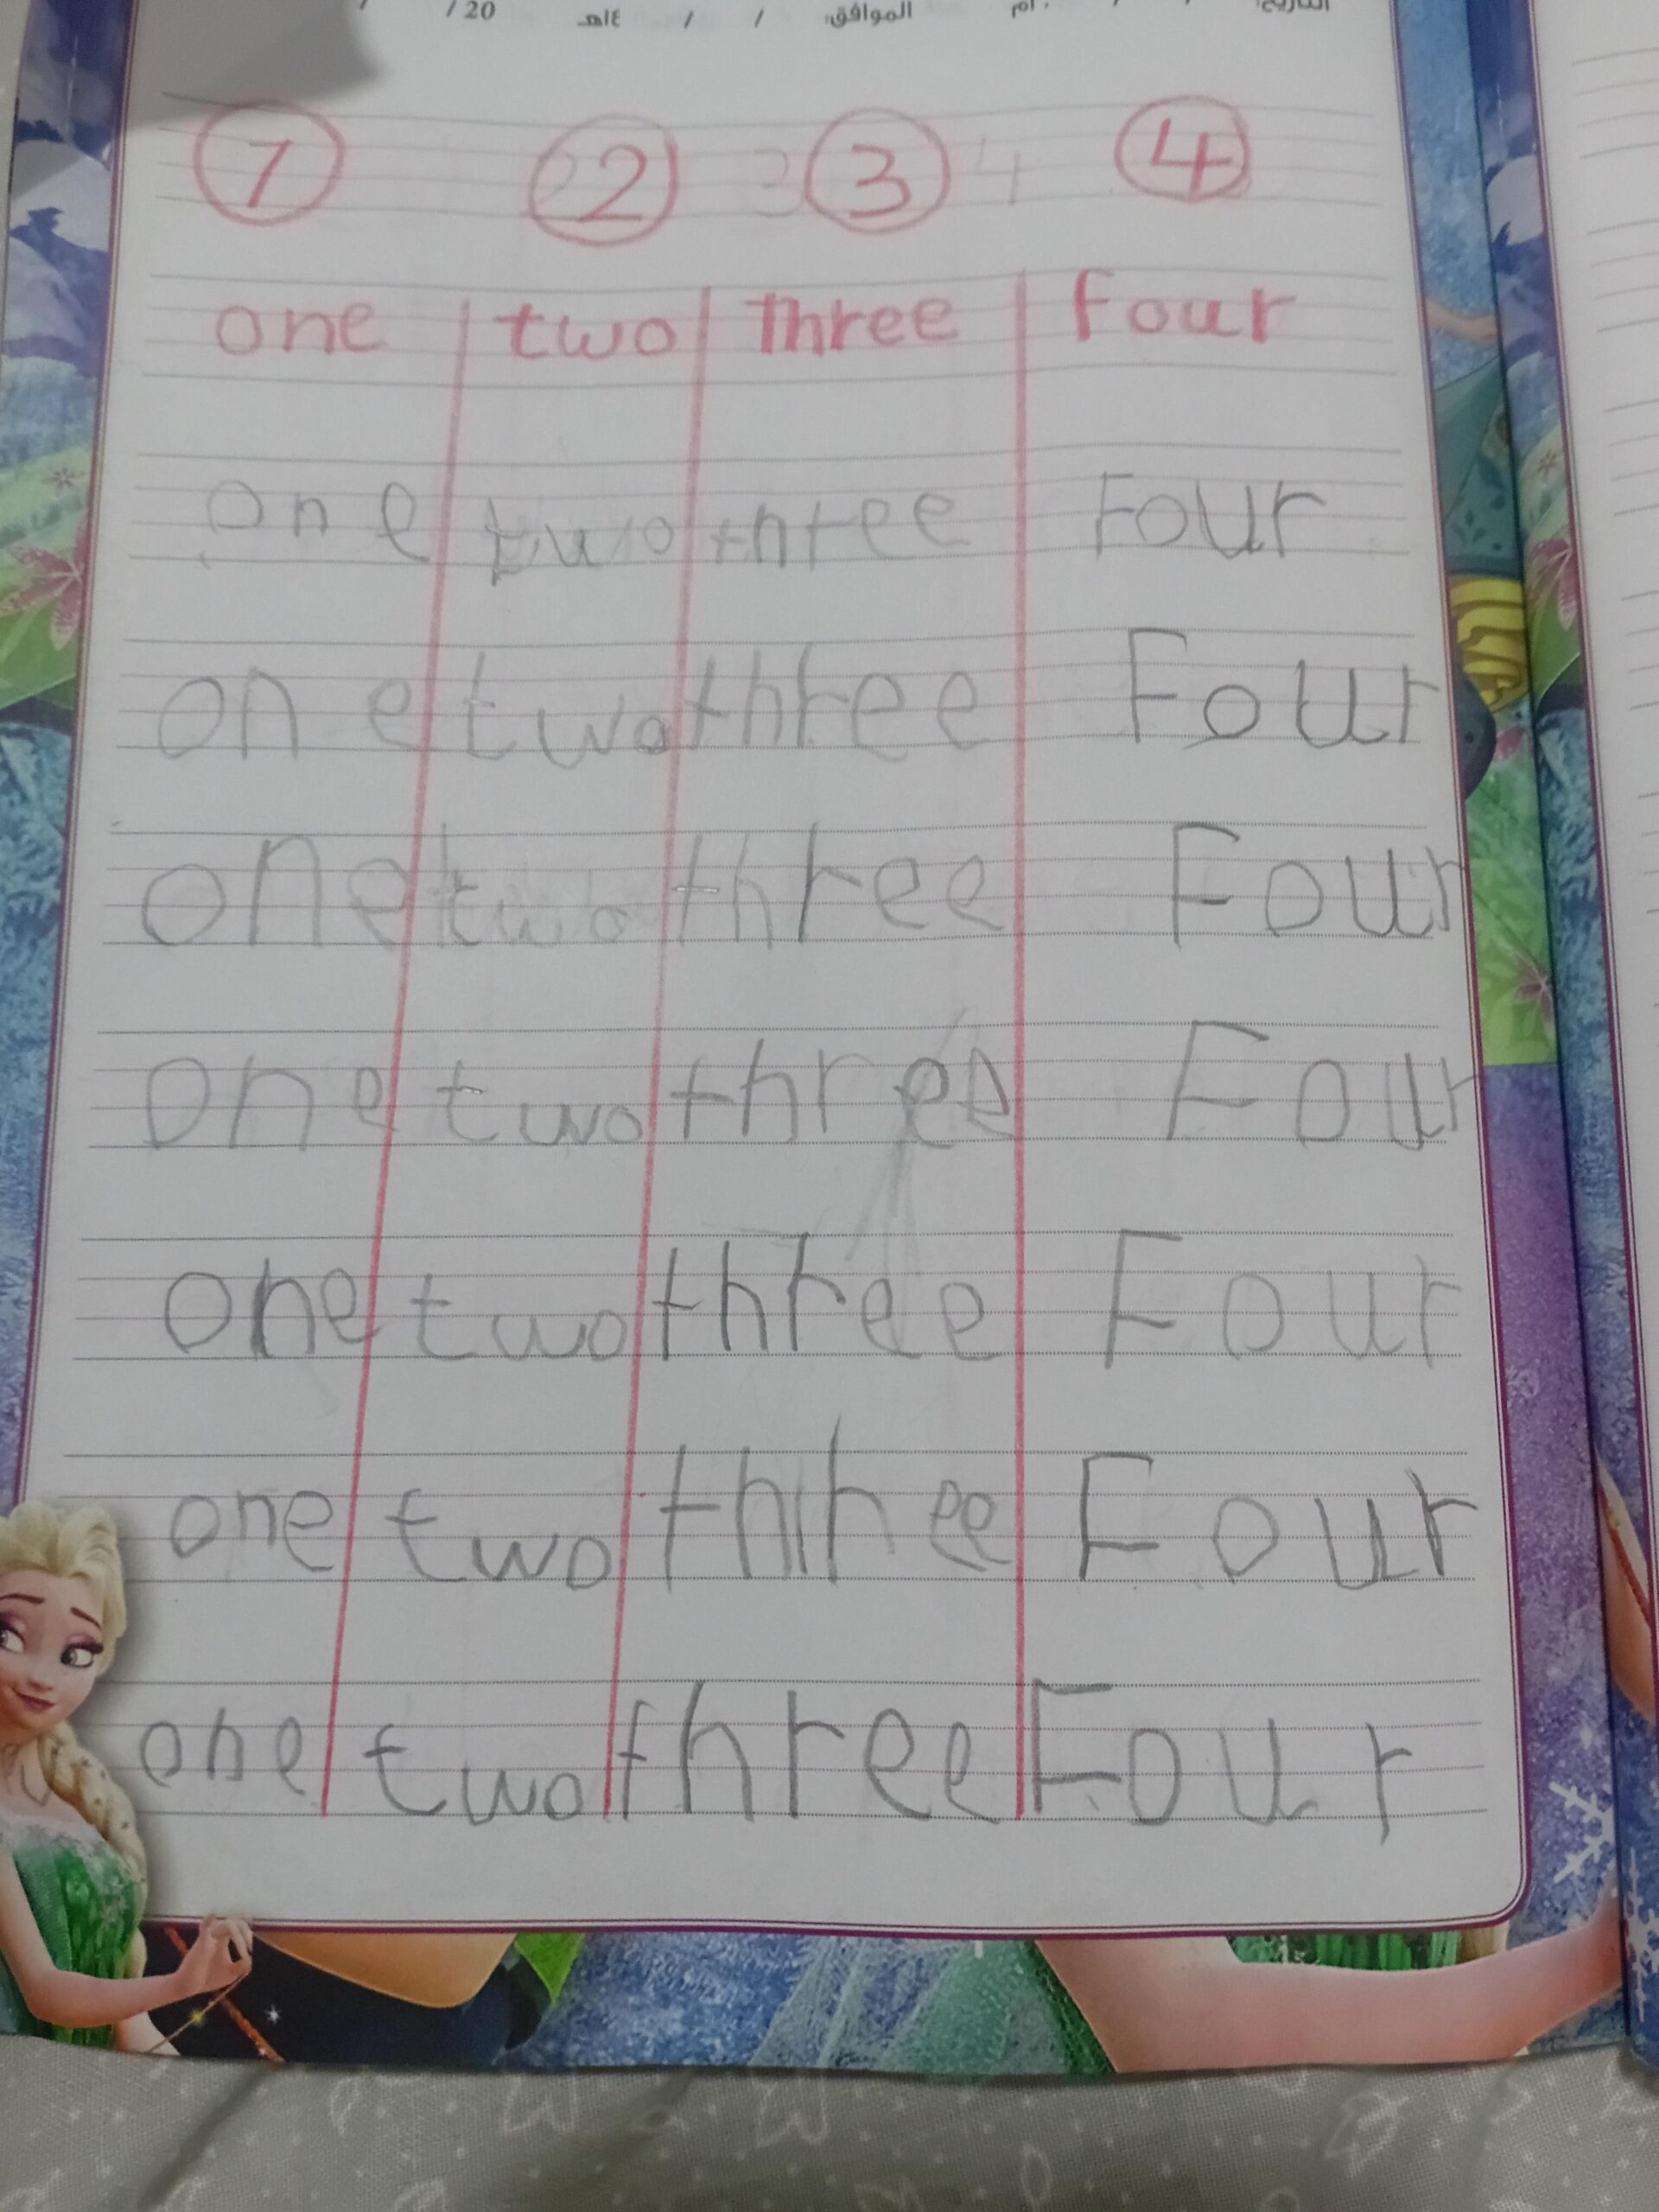 التاريخ: / / ١٤هـ الموافق: / / 20م
1 2 3 4
one two three four
one two three Four
one two three Four
one two three Four
one two three Four
one two three Four
one two thrhee Four
one two three Four